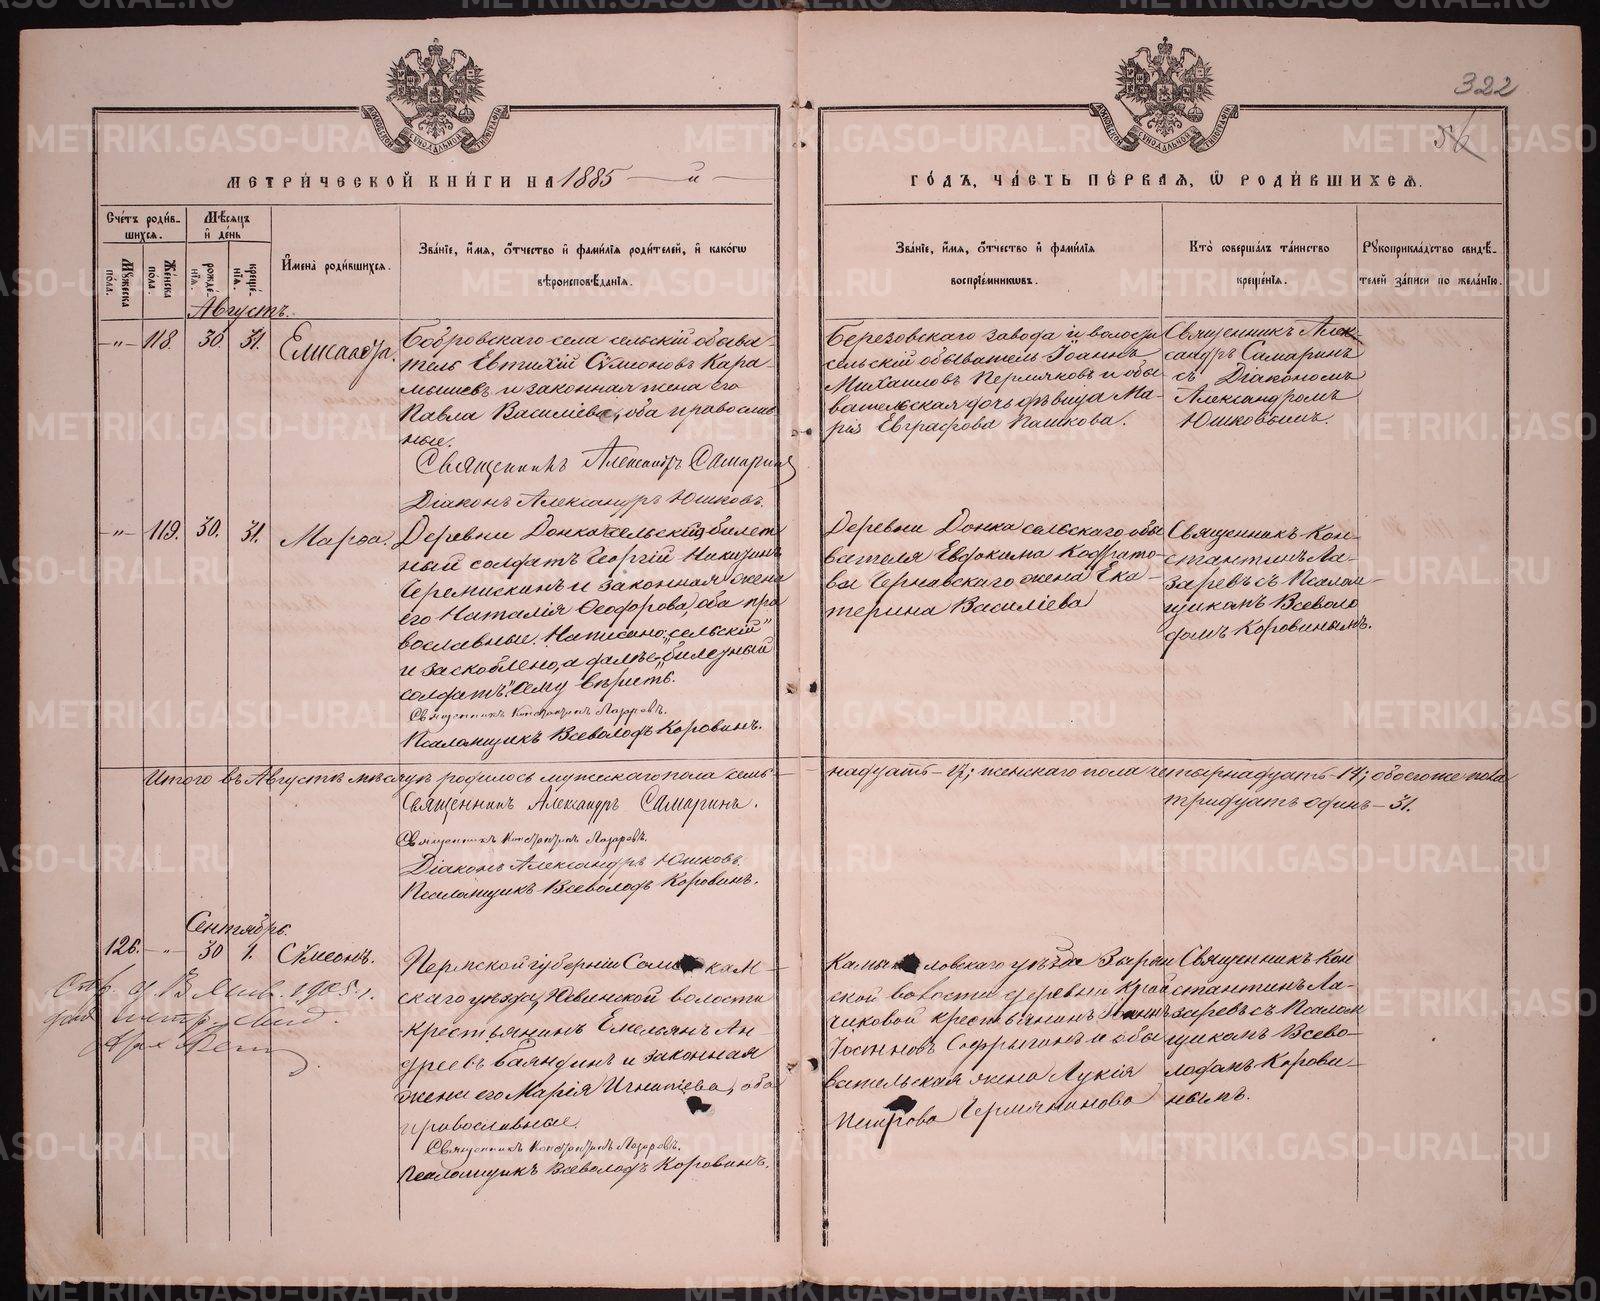 322
56
МЕТРИ́ЧЕСКОЙ КНИ́ГИ НА 1885 — й —
ГО́ДЪ, ЧА́СТЬ ПЕ́РВАЯ, Ѡ РОДИ́ВШИХСѦ.
Сче́тъ роди́в-
шихсѧ.
Мѣ́сѧцъ
и҆ де́нь
И҆мена̀ роди́вшихсѧ.
Зва́нїе, и҆́мѧ, о҆́тчество и҆ фами́лїѧ роди́телей, и҆ како́гѡ
вѣроисповѣ́данїѧ.
Зва́нїе, и҆́мѧ, о҆́тчество и҆ фами́лїѧ
воспрїе́мникѡвъ.
Кто̀ соверша́лъ та́инство
креще́нїѧ.
Рꙋкоприкла́дство свидѣ́-
телей за́писи по жела́нїю.
Мꙋ́жеска
по́ла.
Же́нска
по́ла.
рожде́-
нїѧ.
креще́-
нїѧ.
Августъ.
-"- 118. 30 31. Елисавета.
Бобровскаго села сельскій обыва-
тель Евтихій Сѵмеоновъ Кара-
мышевъ и законная жена его
Павла Василіева, оба православ-
ные.
Священникъ Александръ Самаринъ
Діаконъ Александръ Юшковъ.
Березовскаго завода и волости
сельскій обыватель Іоаннъ
Михаиловъ Пермяковъ и обы-
вательская дочь дѣвица Ма-
рія Евграфова Пашкова.
Священникъ Алек-
сандръ Самаринъ
съ Діакономъ
Александромъ
Юшковымъ.
-"- 119. 30. 31. Марѳа.
Деревни Донка сельскій билет-
ный солдатъ Георгій Никитинъ
Черемискинъ и законная жена
его Наталія Ѳеодорова, оба пра-
вославные. Написано: "сельскій"
и заскоблено, а далѣе "билетный
солдатъ". Сему вѣрить.
Священникъ Константинъ Лазаревъ.
Псаломщикъ Всеволодъ Коровинъ.
Деревни Донка сельскаго обы-
вателя Евдокима Кодрато-
ва Чернавскаго жена Ека-
терина Василіева
Священникъ Кон-
стантинъ Ла-
заревъ съ Псалом-
щикомъ Всеволо-
домъ Коровинымъ.
Итого въ Августѣ мѣсяцѣ родилось мужескаго пола семь-
надцать - 17; женскаго пола четырнадцать - 14; обоего же пола
тридцать одинъ - 31.
Священникъ Александръ Самаринъ.
Священникъ Константинъ Лазаревъ.
Діаконъ Александръ Юшковъ.
Псаломщикъ Всеволодъ Коровинъ.
Сентябрь.
126. -"- 30 1. Сѵмеонъ.
Пермской губерніи Соли кам-
скаго уѣзда, Юсвинской волости
крестьянинъ Емельянъ Ан-
дреевъ Баяндинъ и законная
жена его Марія Игнатіева, оба
православные.
Священникъ Константинъ Лазаревъ.
Псаломщикъ Всеволодъ Коровинъ.
Камышловскаго уѣзда Зырян
ской волости деревни Край
чиковой крестьянинъ Іоаннъ
Іустиновъ Софрыгинъ и обы
вательская жена Лукія
Петрова Чермянинова
Священникъ Кон
стантинъ Ла-
заревъ съ Псалом
щикомъ Всево-
лодомъ Корови-
нымъ.
METRIKI.GASO-URAL.RU